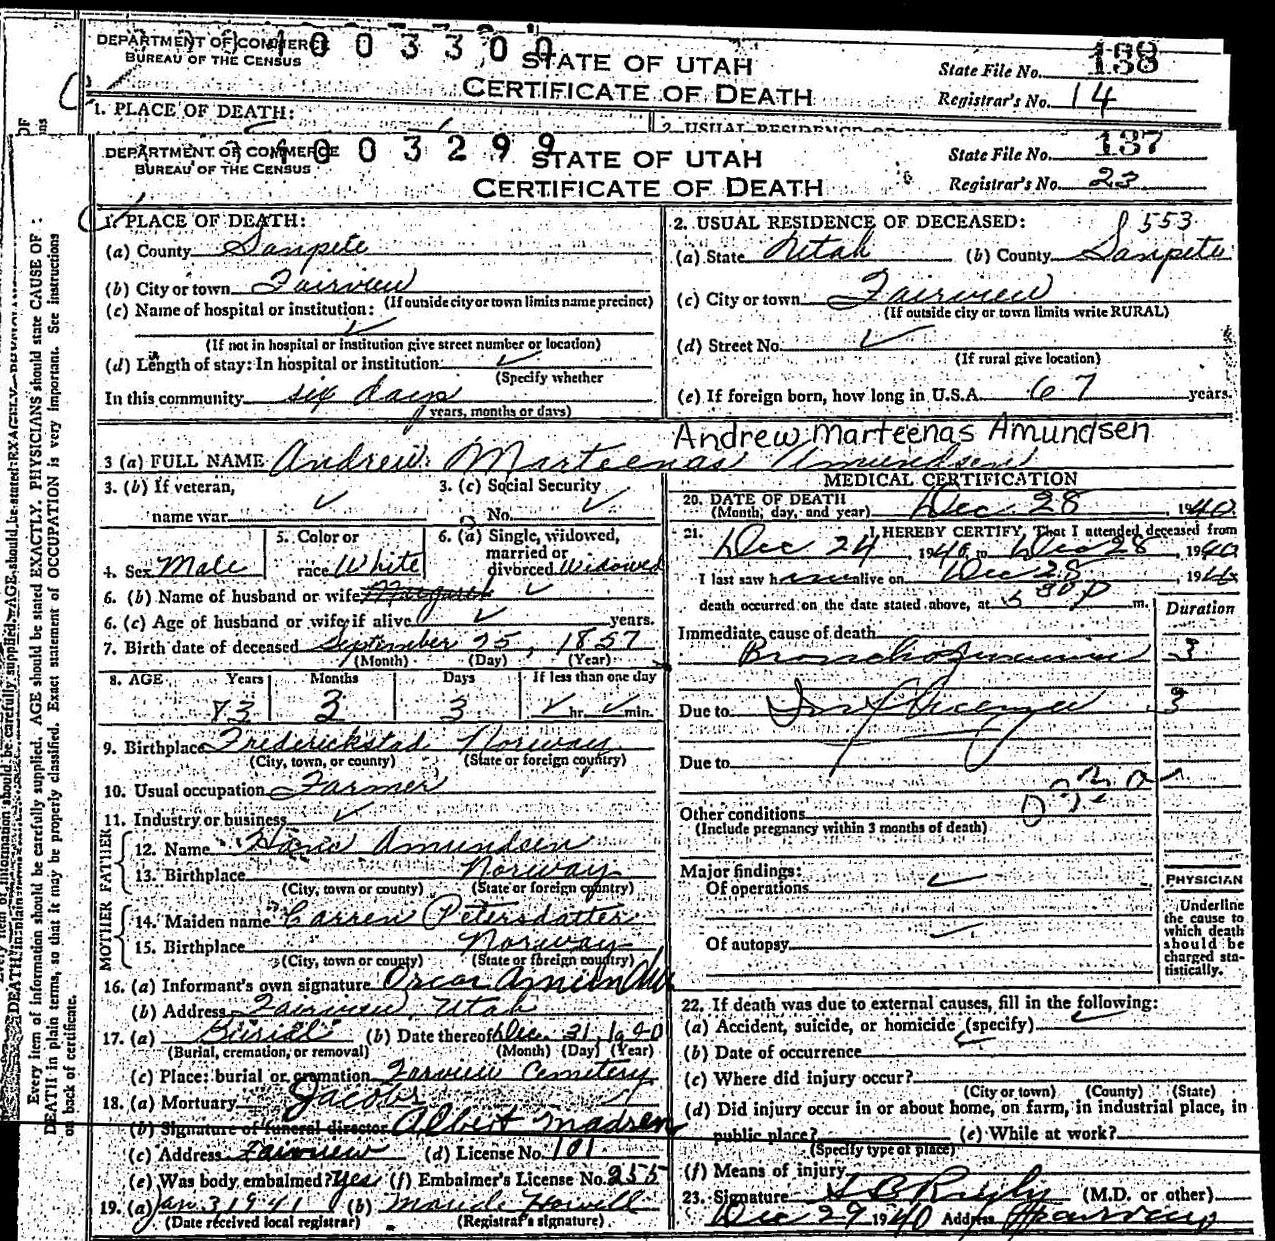 DEPARTMENT OF COMMERCE
BUREAU OF THE CENSUS
003300
STATE OF UTAH
CERTIFICATE OF DEATH
State File No. 138
Registrar's No. 14
1. PLACE OF DEATH:
2. USUAL RESIDENCE OF
DEPARTMENT OF COMMERCE
BUREAU OF THE CENSUS
003299
STATE OF UTAH
CERTIFICATE OF DEATH
State File No. 137
Registrar's No. 23
Every item of information should be carefully supplied. AGE should be stated EXACTLY. PHYSICIANS should state CAUSE OF
DEATH in plain terms, so that it may be properly classified. Exact statement of OCCUPATION is very important. See instructions
on back of certificate.
1. PLACE OF DEATH:
(a) County Sanpete
(b) City or town Fairview
(If outside city or town limits name precinct)
(c) Name of hospital or institution:
(If not in hospital or institution give street number or location)
(d) Length of stay: In hospital or institution
(Specify whether
In this community six days
years, months or days)
2. USUAL RESIDENCE OF DECEASED: 553
(a) State Utah (b) County Sanpete
(c) City or town Fairview
(If outside city or town limits write RURAL)
(d) Street No.
(If rural give location)
(e) If foreign born, how long in U.S.A. 67 years.
Andrew Marteenas Amundsen
3 (a) FULL NAME Andrew Marteenas Amundsen
3. (b) If veteran,
name war
3. (c) Social Security
No.
4. Sex Male
5. Color or
race White
6. (a) Single, widowed,
married or
divorced Widowed
6. (b) Name of husband or wife Margaret
6. (c) Age of husband or wife if alive years.
7. Birth date of deceased September 25, 1857
(Month) (Day) (Year)
8. AGE Years Months Days If less than one day
83 3 3 hr. min.
9. Birthplace Frederickstad Norway
(City, town, or county) (State or foreign country)
10. Usual occupation Farmer
11. Industry or business
FATHER
12. Name Amundsen
13. Birthplace Norway
(City, town or county) (State or foreign country)
MOTHER
14. Maiden name Carren Petersdatter
15. Birthplace Norway
(City, town or county) (State or foreign country)
16. (a) Informant's own signature Oscar Amundsen
(b) Address Fairview, Utah
17. (a) Burial (b) Date thereof Dec. 31, 1940
(Burial, cremation, or removal) (Month) (Day) (Year)
(c) Place: burial or cremation Fairview Cemetery
18. (a) Mortuary Jacobs
(b) Signature of funeral director Albert Madsen
(c) Address Fairview (d) License No. 101
(e) Was body embalmed? Yes (f) Embalmer's License No. 255
19. (a) Jan 3 1941 (b) Maude Howell
(Date received local registrar) (Registrar's signature)
MEDICAL CERTIFICATION
20. DATE OF DEATH
(Month, day, and year) Dec. 28, 1940
21. I HEREBY CERTIFY, That I attended deceased from
Dec 24, 1940 to Dec 28, 1940
I last saw h alive on Dec 28, 1940
death occurred on the date stated above, at 5 30 P m.
Duration
Immediate cause of death
Bronchopneumonia 3
Due to Influenza 3
Due to
Other conditions
(Include pregnancy within 3 months of death)
Major findings:
Of operations
Of autopsy
PHYSICIAN
Underline
the cause to
which death
should be
charged sta-
tistically.
22. If death was due to external causes, fill in the following:
(a) Accident, suicide, or homicide (specify)
(b) Date of occurrence
(c) Where did injury occur?
(City or town) (County) (State)
(d) Did injury occur in or about home, on farm, in industrial place, in
public place? (e) While at work?
(Specify type of place)
(f) Means of injury
23. Signature (M.D. or other)
Dec 29 1940 Address Fairview